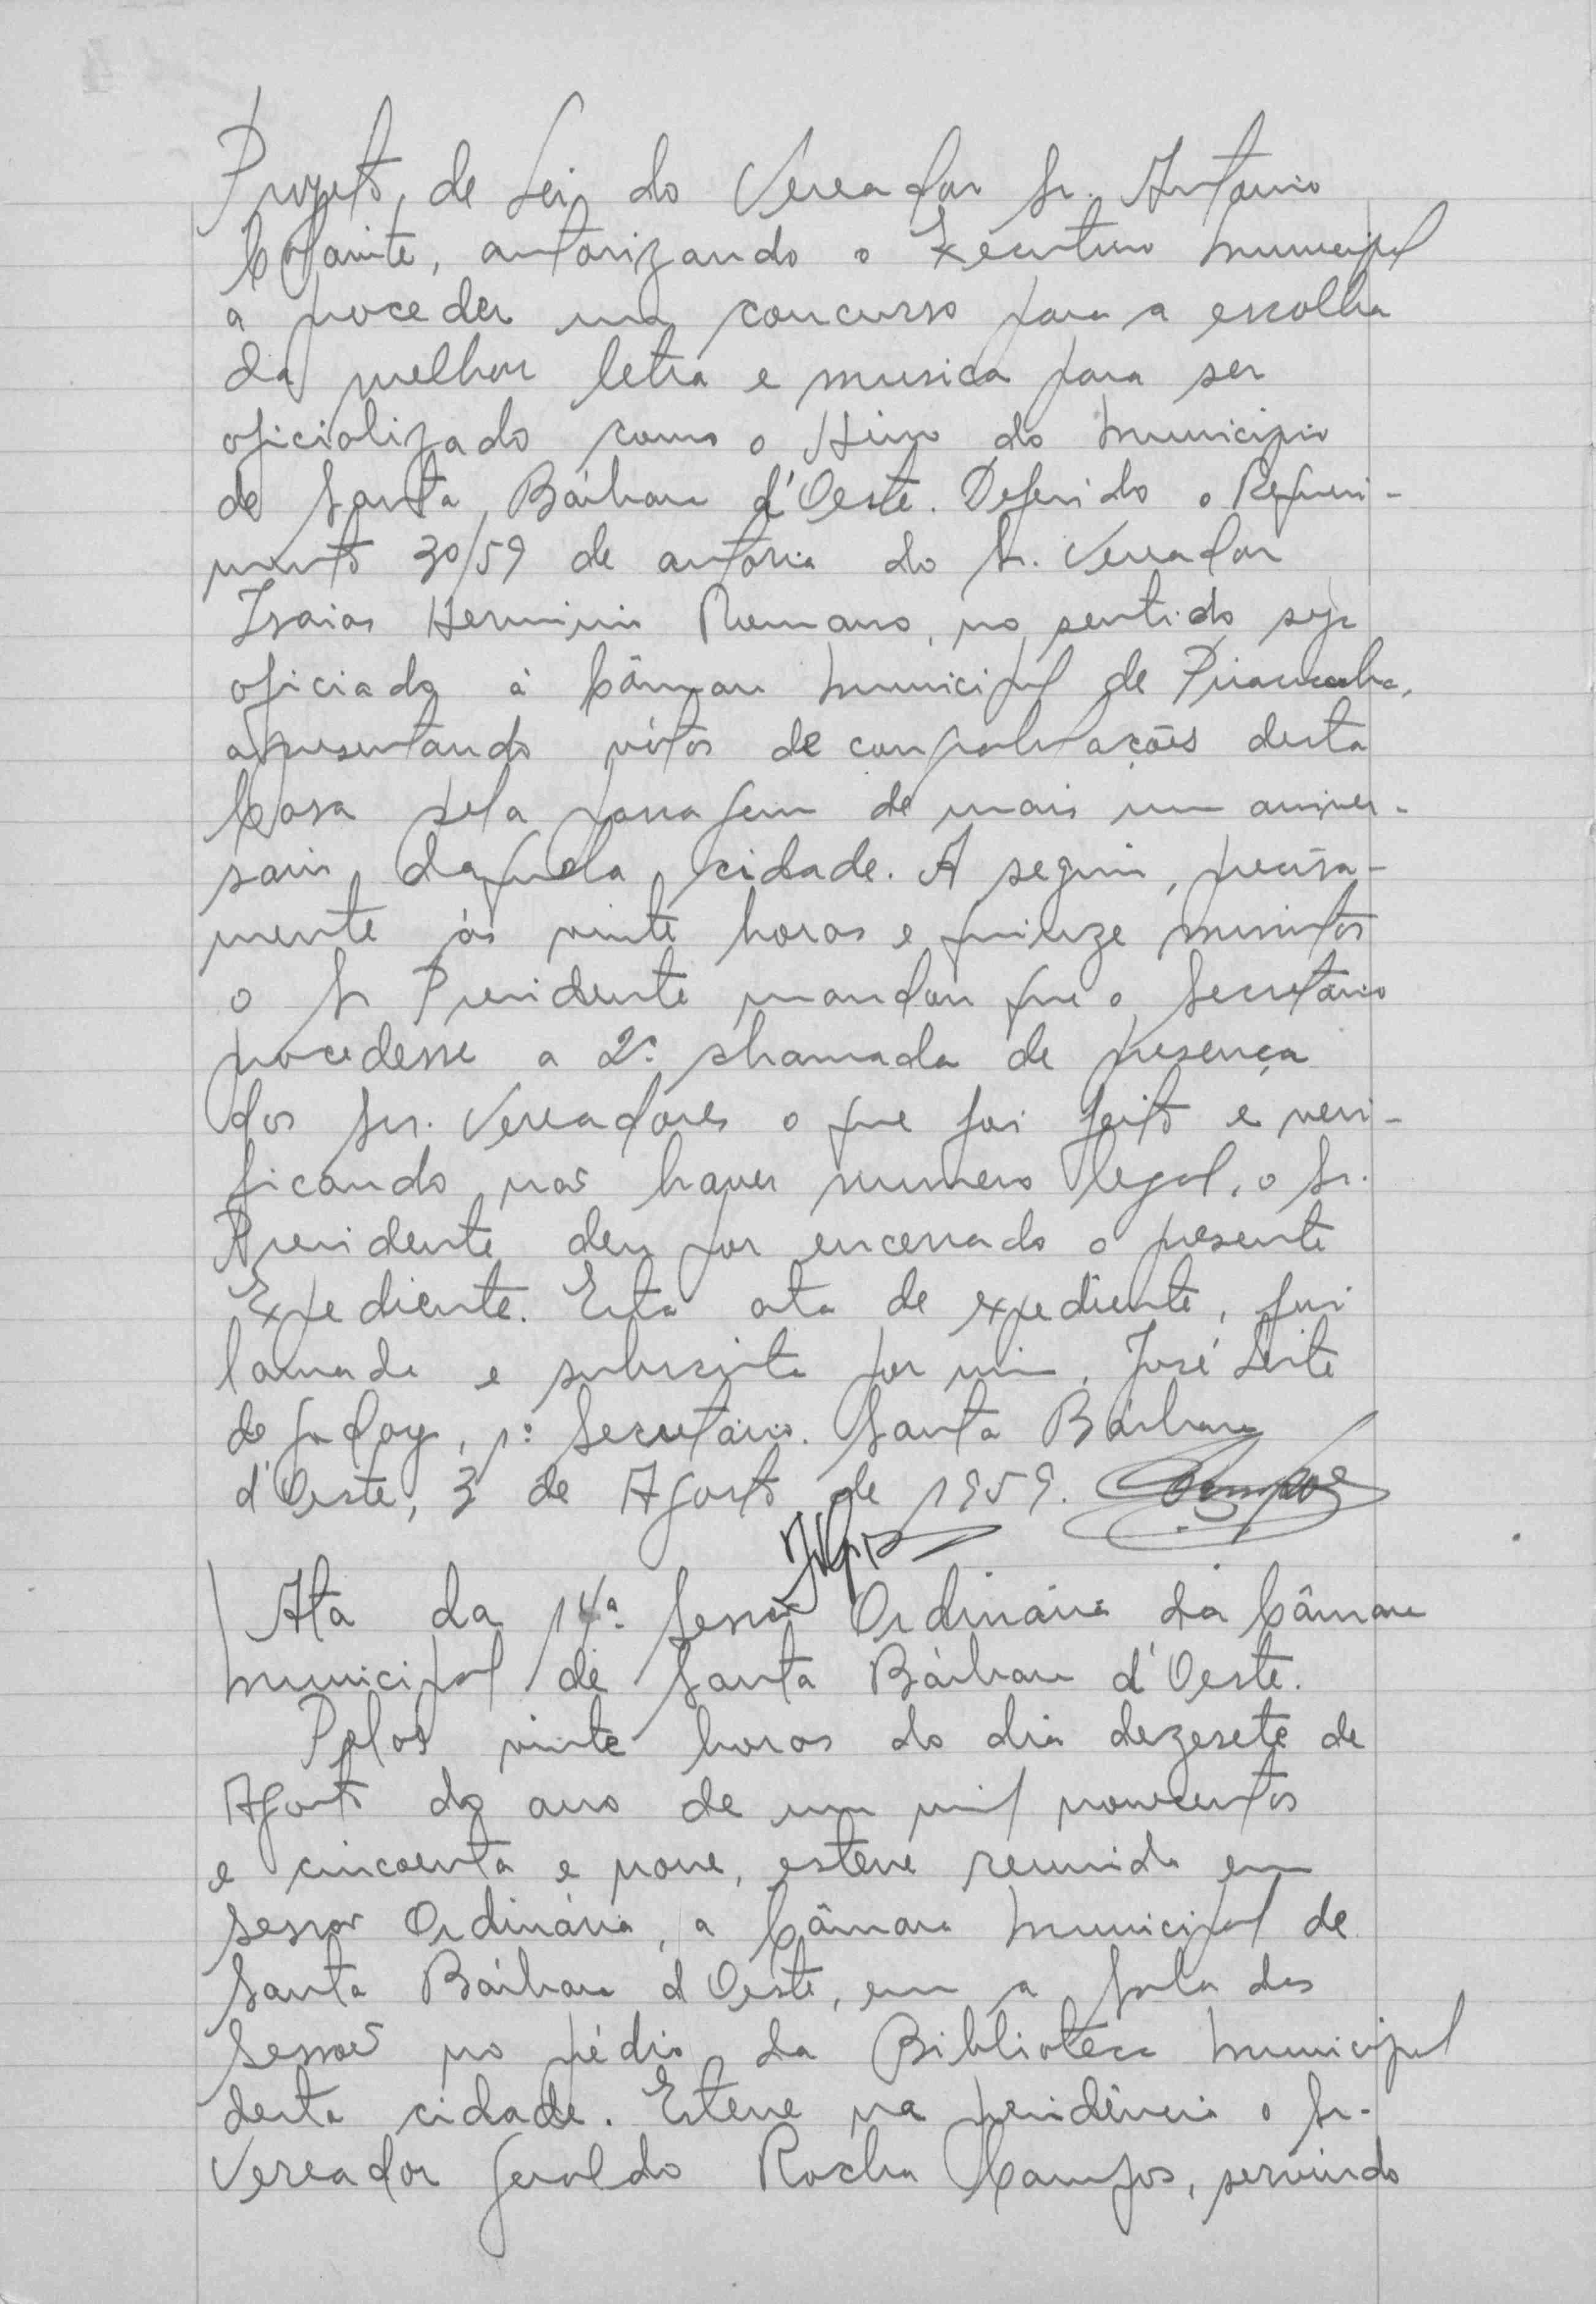 Projeto de Lei do Vereador Sr. Antonio
autorizando o Executivo Municipal
a proceder um concurso para a escolha
da melhor letra e musica para ser
oficializado como o Hino do Municipio
de Santa Bárbara d'Oeste. Deferido o Requeri-
mento 30/59 de autoria do Sr. Vereador
Isaias Herminio Romano, no sentido seja
oficiado à Câmara Municipal de Piracicaba,
apresentando vótos de congratulações desta
Casa pela passagem de mais um aniver-
sario daquela cidade. A seguir, precisa-
mente ás vinte horas e quinze minutos
o Sr Presidente mandou que o Secretário
procedesse a 2ª chamada de presença
dos Srs. Vereadores o que foi feito e veri-
ficando não haver numero legal, o Sr.
Presidente deu por encerrado o presente
Expediente. Esta ata de expediente, foi
lavrada e subscrita por mim, José Leite
de Godoy, 1º Secretário. Santa Bárbara
d'Oeste, 3 de Agosto de 1959. Campos
Ata da 14ª Sessão Ordinária da Câmara
Municipal de Santa Bárbara d'Oeste.
Pelas vinte horas do dia dezesete de
Agosto do ano de um mil novecentos
e cincoenta e nove, esteve reunida em
sessão Ordinária, a Câmara Municipal de
Santa Bárbara d'Oeste, em a sala das
Sessões no prédio da Biblioteca Municipal
desta cidade. Esteve na presidência o Sr.
Vereador Geraldo Rocha Campos, servindo